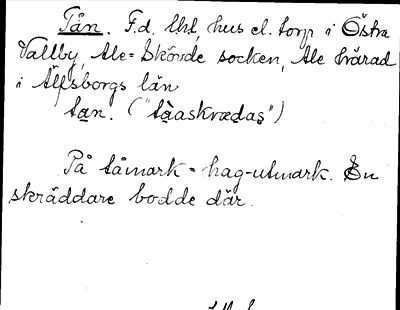 Tån. F.d. lht, hus el. torp i Östra
Vallby, Ale-Skövde socken, Ale härad
i Älfsborgs län
tan. ("tàaskrædas")
På tåmark = hag-utmark. En
skräddare bodde där.